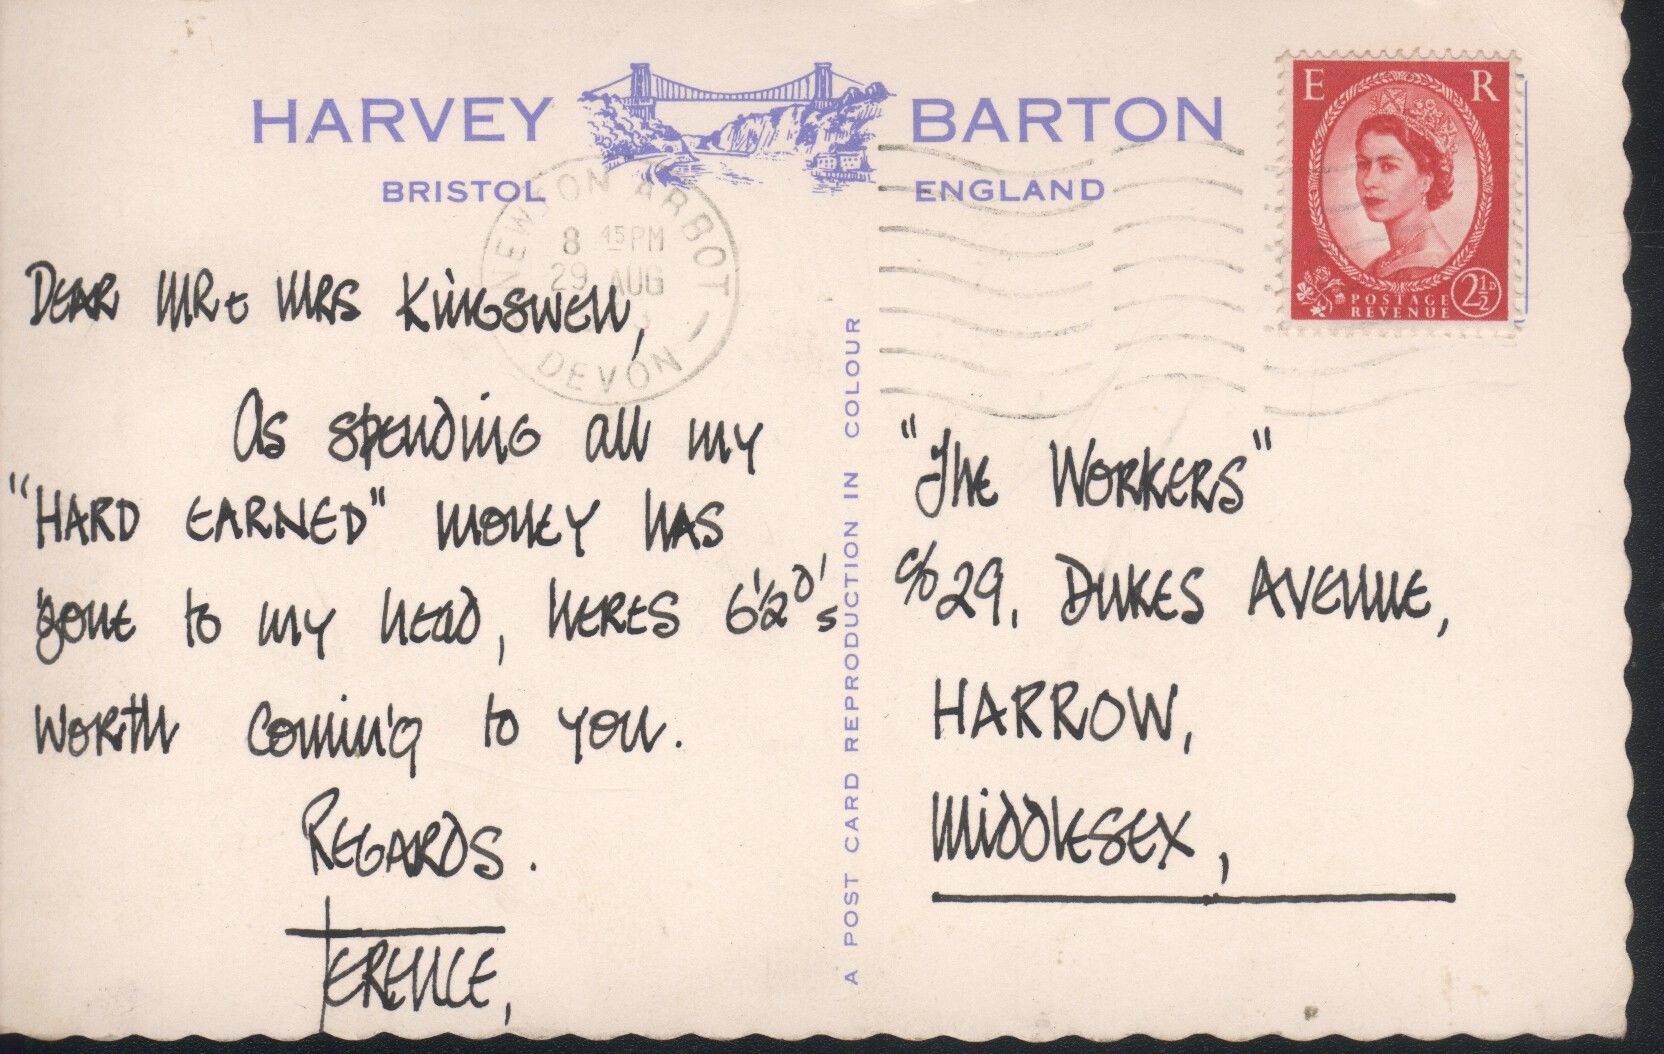 HARVEY BARTON
BRISTOL ENGLAND
NEWTON ABBOT
8 45 PM
29 AUG
DEVON
E R
POSTAGE
REVENUE
2½D
DEAR MR & MRS KINGSWELL,
AS SPENDING ALL MY
"HARD EARNED" MONEY HAS
gone to MY HEAD, HERES 6½D's
WORTH COMING to YOU.
REGARDS.
TERENCE,
A POST CARD REPRODUCTION IN COLOUR
"THE WORKERS"
c/o 29, DUKES AVENUE,
HARROW,
MIDDLESEX,